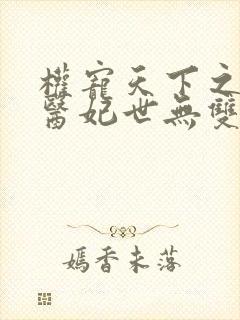 權寵天下之
醫妃世無雙
嫣香未落